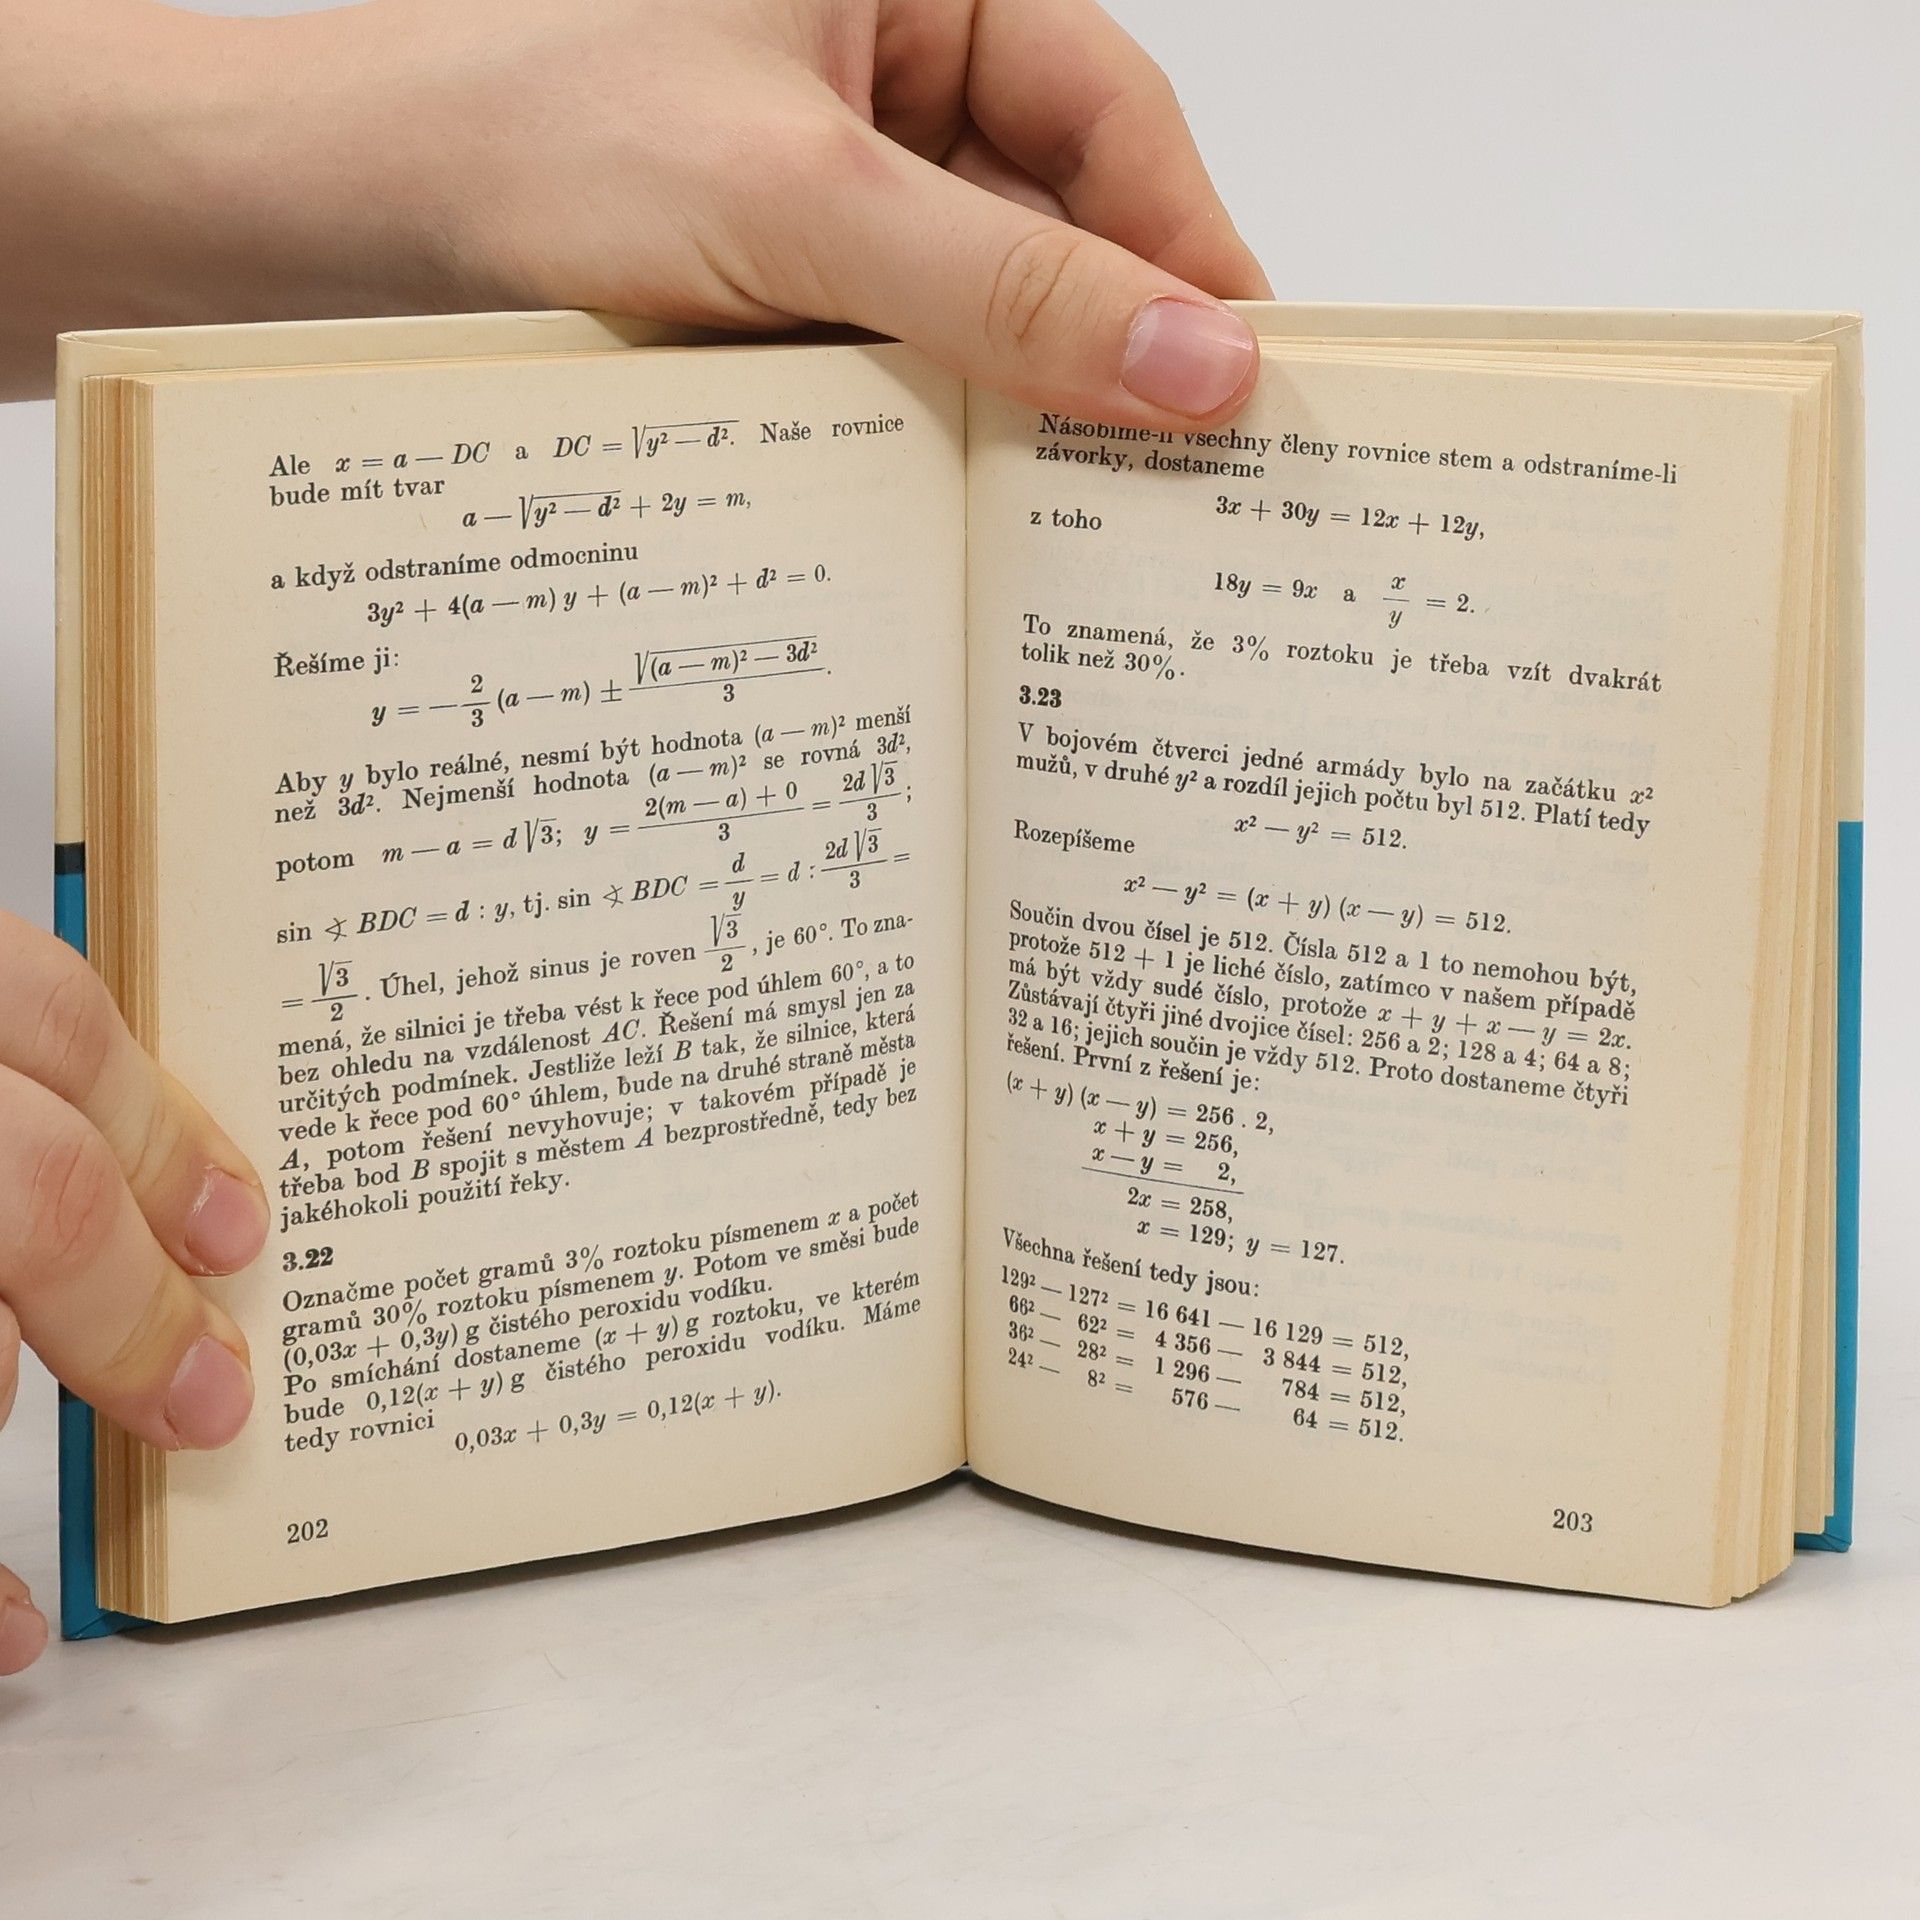 Ale x = a — DC a DC = √(y² — d²). Naše rovnice
bude mít tvar
a — √(y² — d²) + 2y = m,
a když odstraníme odmocninu
3y² + 4(a — m) y + (a — m)² + d² = 0.
Řešíme ji:
y = — 2/3 (a — m) ± √((a — m)² — 3d²)/3.
Aby y bylo reálné, nesmí být hodnota (a — m)² menší
než 3d². Nejmenší hodnota (a — m)² se rovná 3d²,
potom m — a = d √3; y = (2(m — a) + 0)/3 = 2d √3/3;
sin ∢ BDC = d : y, tj. sin ∢ BDC = d/y = d : 2d √3/3 =
= √3/2. Úhel, jehož sinus je roven √3/2, je 60°. To zna-
mená, že silnici je třeba vést k řece pod úhlem 60°, a to
bez ohledu na vzdálenost AC. Řešení má smysl jen za
určitých podmínek. Jestliže leží B tak, že silnice, která
vede k řece pod 60° úhlem, bude na druhé straně města
A, potom řešení nevyhovuje; v takovém případě je
třeba bod B spojit s městem A bezprostředně, tedy bez
jakéhokoli použití řeky.
3.22
Označme počet gramů 3% roztoku písmenem x a počet
gramů 30% roztoku písmenem y. Potom ve směsi bude
(0,03x + 0,3y) g čistého peroxidu vodíku.
Po smíchání dostaneme (x + y) g roztoku, ve kterém
bude 0,12(x + y) g čistého peroxidu vodíku. Máme
tedy rovnici
0,03x + 0,3y = 0,12(x + y).
202
Násobíme-li všechny členy rovnice stem a odstraníme-li
závorky, dostaneme
3x + 30y = 12x + 12y,
z toho
18y = 9x a x/y = 2.
To znamená, že 3% roztoku je třeba vzít dvakrát
tolik než 30%.
3.23
V bojovém čtverci jedné armády bylo na začátku x²
mužů, v druhé y² a rozdíl jejich počtu byl 512. Platí tedy
x² — y² = 512.
Rozepíšeme
x² — y² = (x + y) (x — y) = 512.
Součin dvou čísel je 512. Čísla 512 a 1 to nemohou být,
protože 512 + 1 je liché číslo, zatímco v našem případě
má být vždy sudé číslo, protože x + y + x — y = 2x.
Zůstávají čtyři jiné dvojice čísel: 256 a 2; 128 a 4; 64 a 8;
32 a 16; jejich součin je vždy 512. Proto dostaneme čtyři
řešení. První z řešení je:
(x + y) (x — y) = 256 . 2,
x + y = 256,
x — y = 2,
2x = 258,
x = 129; y = 127.
Všechna řešení tedy jsou:
129² — 127² = 16 641 — 16 129 = 512,
66² — 62² = 4 356 — 3 844 = 512,
36² — 28² = 1 296 — 784 = 512,
24² — 8² = 576 — 64 = 512.
203